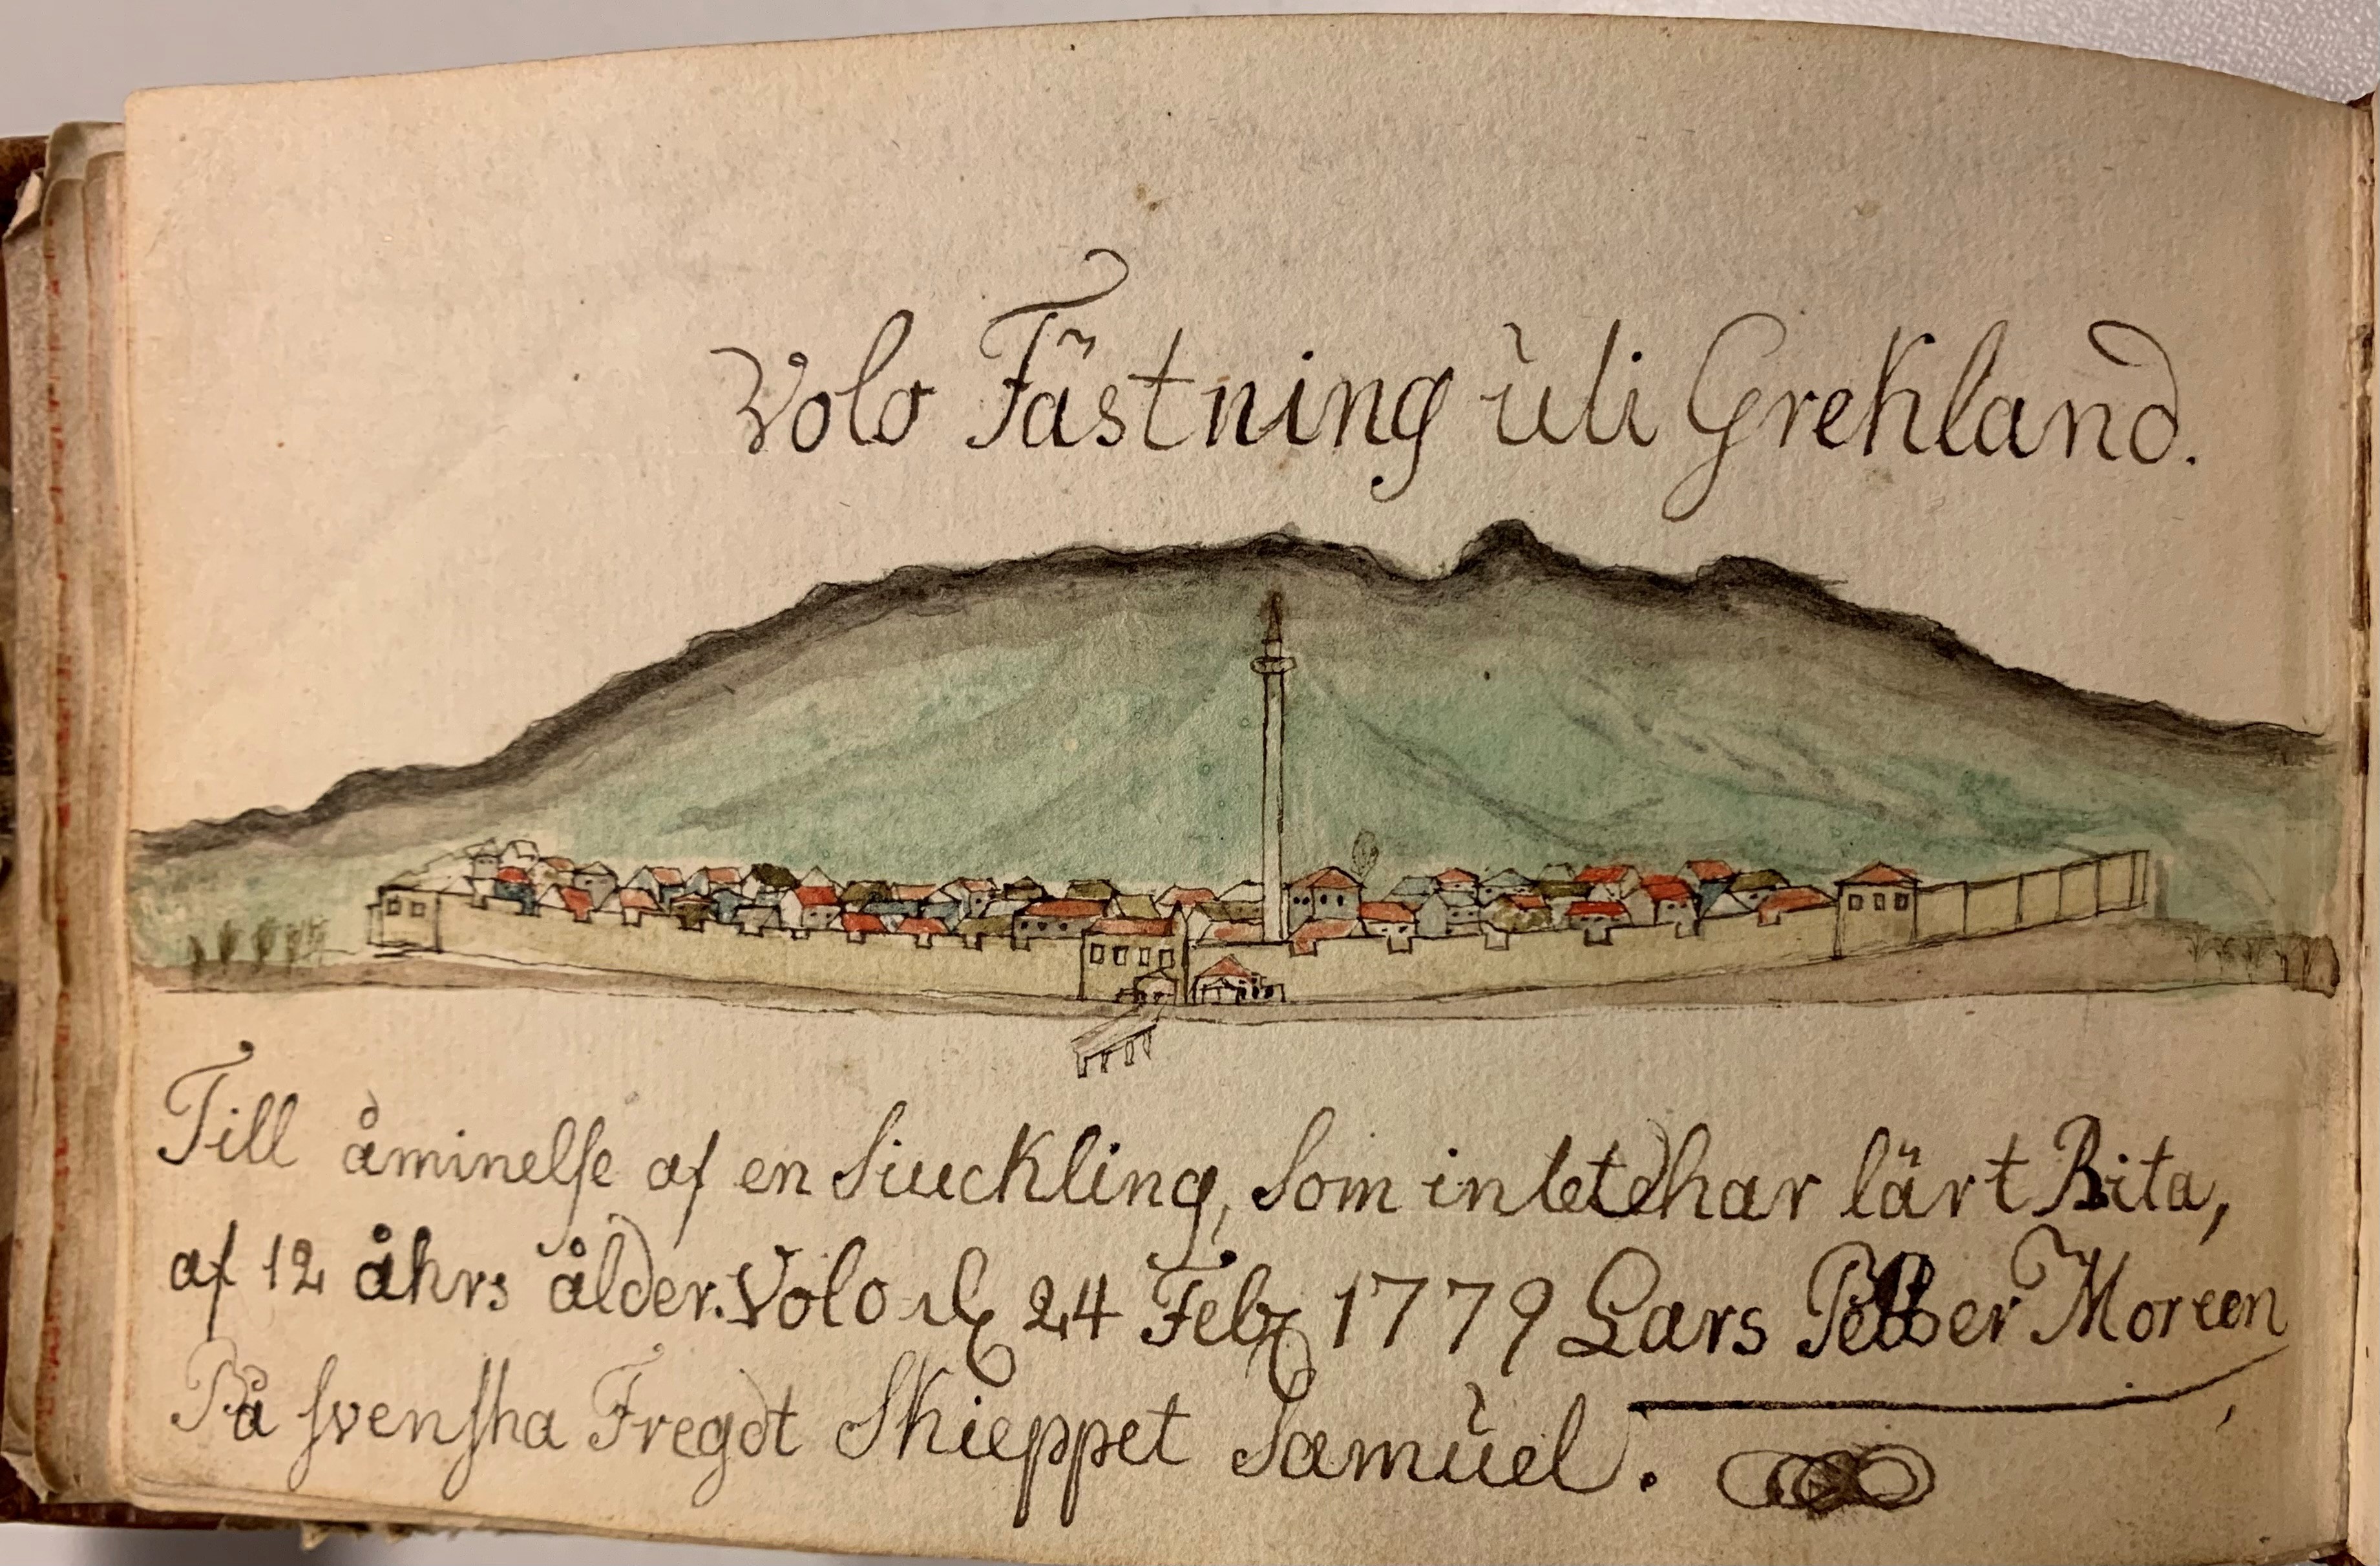 Volo Fästning uti Grekland.
Till åminelse af en Siuckling, Som intet har lärt Rita,
af 12 åhrs ålder. Volo d. 24 Feb. 1779 Lars Petter Moreen
På svenska Fregdt Skieppet Samuel.